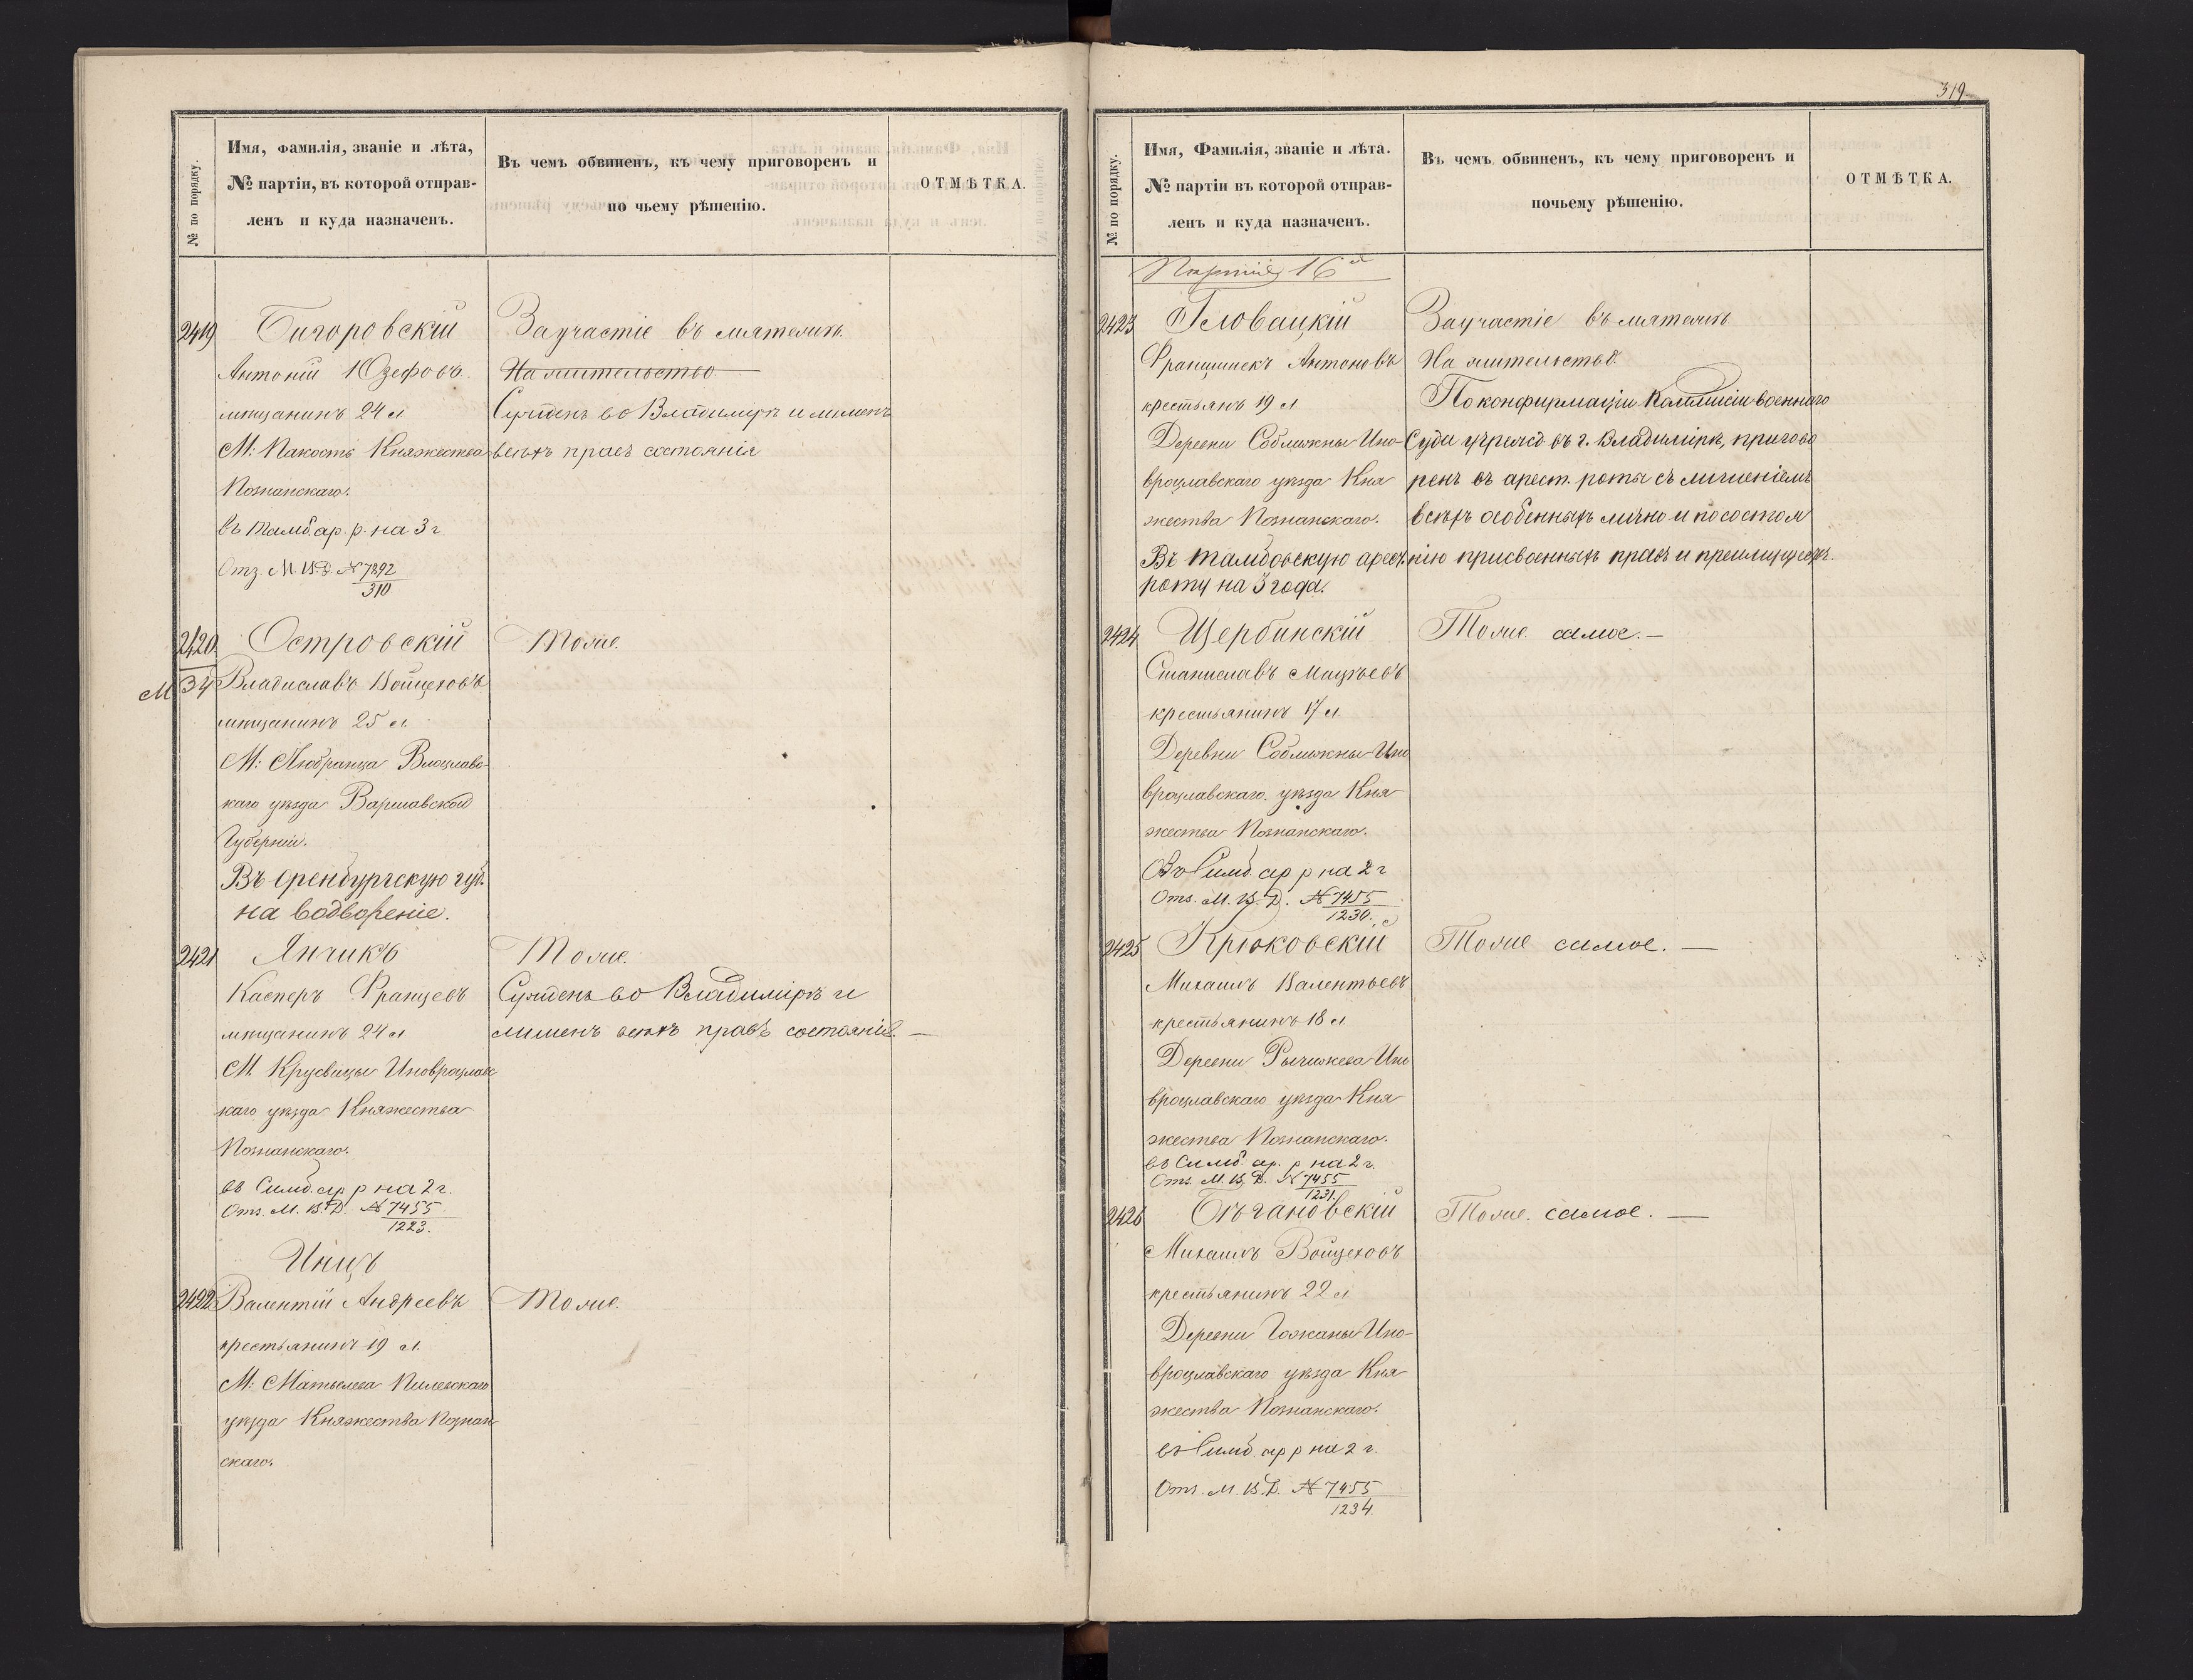 № по порядку.
Имя, фамилія, званіе и лѣта,
№ партіи, въ которой отправ-
ленъ и куда назначенъ.
Въ чемъ обвиненъ, къ чему приговоренъ и
по чьему рѣшенію.
ОТМѢТКА.
2419
Бигоровскій
Антоній Юзефовъ
мѣщанинъ 24 л
М: Пакость Княжества
Познанскаго.
въ тамб. ар. р. на 3 г
Отз. М. В. Д. № 7892
310
За участіе въ мятежѣ.
На жительство
Сужденъ во Владимірѣ и лишенъ
всѣхъ правъ состоянія
2420
М 34
Островскій
Владиславъ Войцеховъ
мѣщанинъ 25 л
М: Любранца Влоцлавс-
каго уѣзда Варшавской
Губерніи.
Въ Оренбургскую губ.
на водвореніе.
Тоже.
2421
Янчикъ
Касперъ Францевъ
мѣщанинъ 24 л
М. Крусвицы Иновроцлавс
каго уѣзда Княжества
Познанскаго.
въ Симб. ар р на 2 г.
Отз. М. В. Д. № 7455
1223.
Тоже.
Сужденъ во Владимірѣ и
лишенъ всѣхъ правъ состоянія. —
Инцъ
2422
Валентій Андреевъ
крестьянинъ 19 л.
М: Пилевскаго
уѣзда Княжества Познан
скаго.
Тоже.
319
№ по порядку.
Имя, Фамилія, званіе и лѣта.
№ партіи въ которой отправ-
ленъ и куда назначенъ.
Въ чемъ обвиненъ, къ чему приговоренъ и
почьему рѣшенію.
ОТМѢТКА.
Партія 16й
2423
Гловацкій
Францишекъ Антоновъ
крестьянъ 19 л
Деревни Ино-
вроцлавскаго уѣзда Кня
жества Познанскаго.
Въ тамбовскую арест.
роту на 3 года.
За участіе въ мятежѣ
На жительство.
По конфирмаціи Коммисіи военнаго
Суда учрежд въ г. Владимірѣ, пригово
ренъ въ арест. роты съ лишеніемъ
всѣхъ особенныхъ лично и по состоя
нію присвоенныхъ правъ и преимуществъ.
2424
Щербинскій
Станиславъ Мацѣевъ
крестьянинъ 17 л
Деревни Ино
вроцлавскаго уѣзда Кня
жества Познанскаго.
Въ Симб. ар р на 2 г
Отз. М. В. Д. № 7455
1230.
Тоже самое. —
2425
Крюковскій
Михаилъ Валентьевъ
крестьянинъ 18 л
Деревни Ино
вроцлавскаго уѣзда Кня
жества Познанскаго.
въ Симб. ар. р на 2 г.
Отз. М. В. Д. № 7455
1231.
Тоже самое. —
2426
Бѣгановскій
Михаилъ Войцеховъ
крестьянинъ 22 л
Деревни Ино-
вроцлавскаго уѣзда Кня
жества Познанскаго.
въ Симб. ар р на 2 г.
Отз. М. В. Д. № 7455
1234.
Тоже самое. —